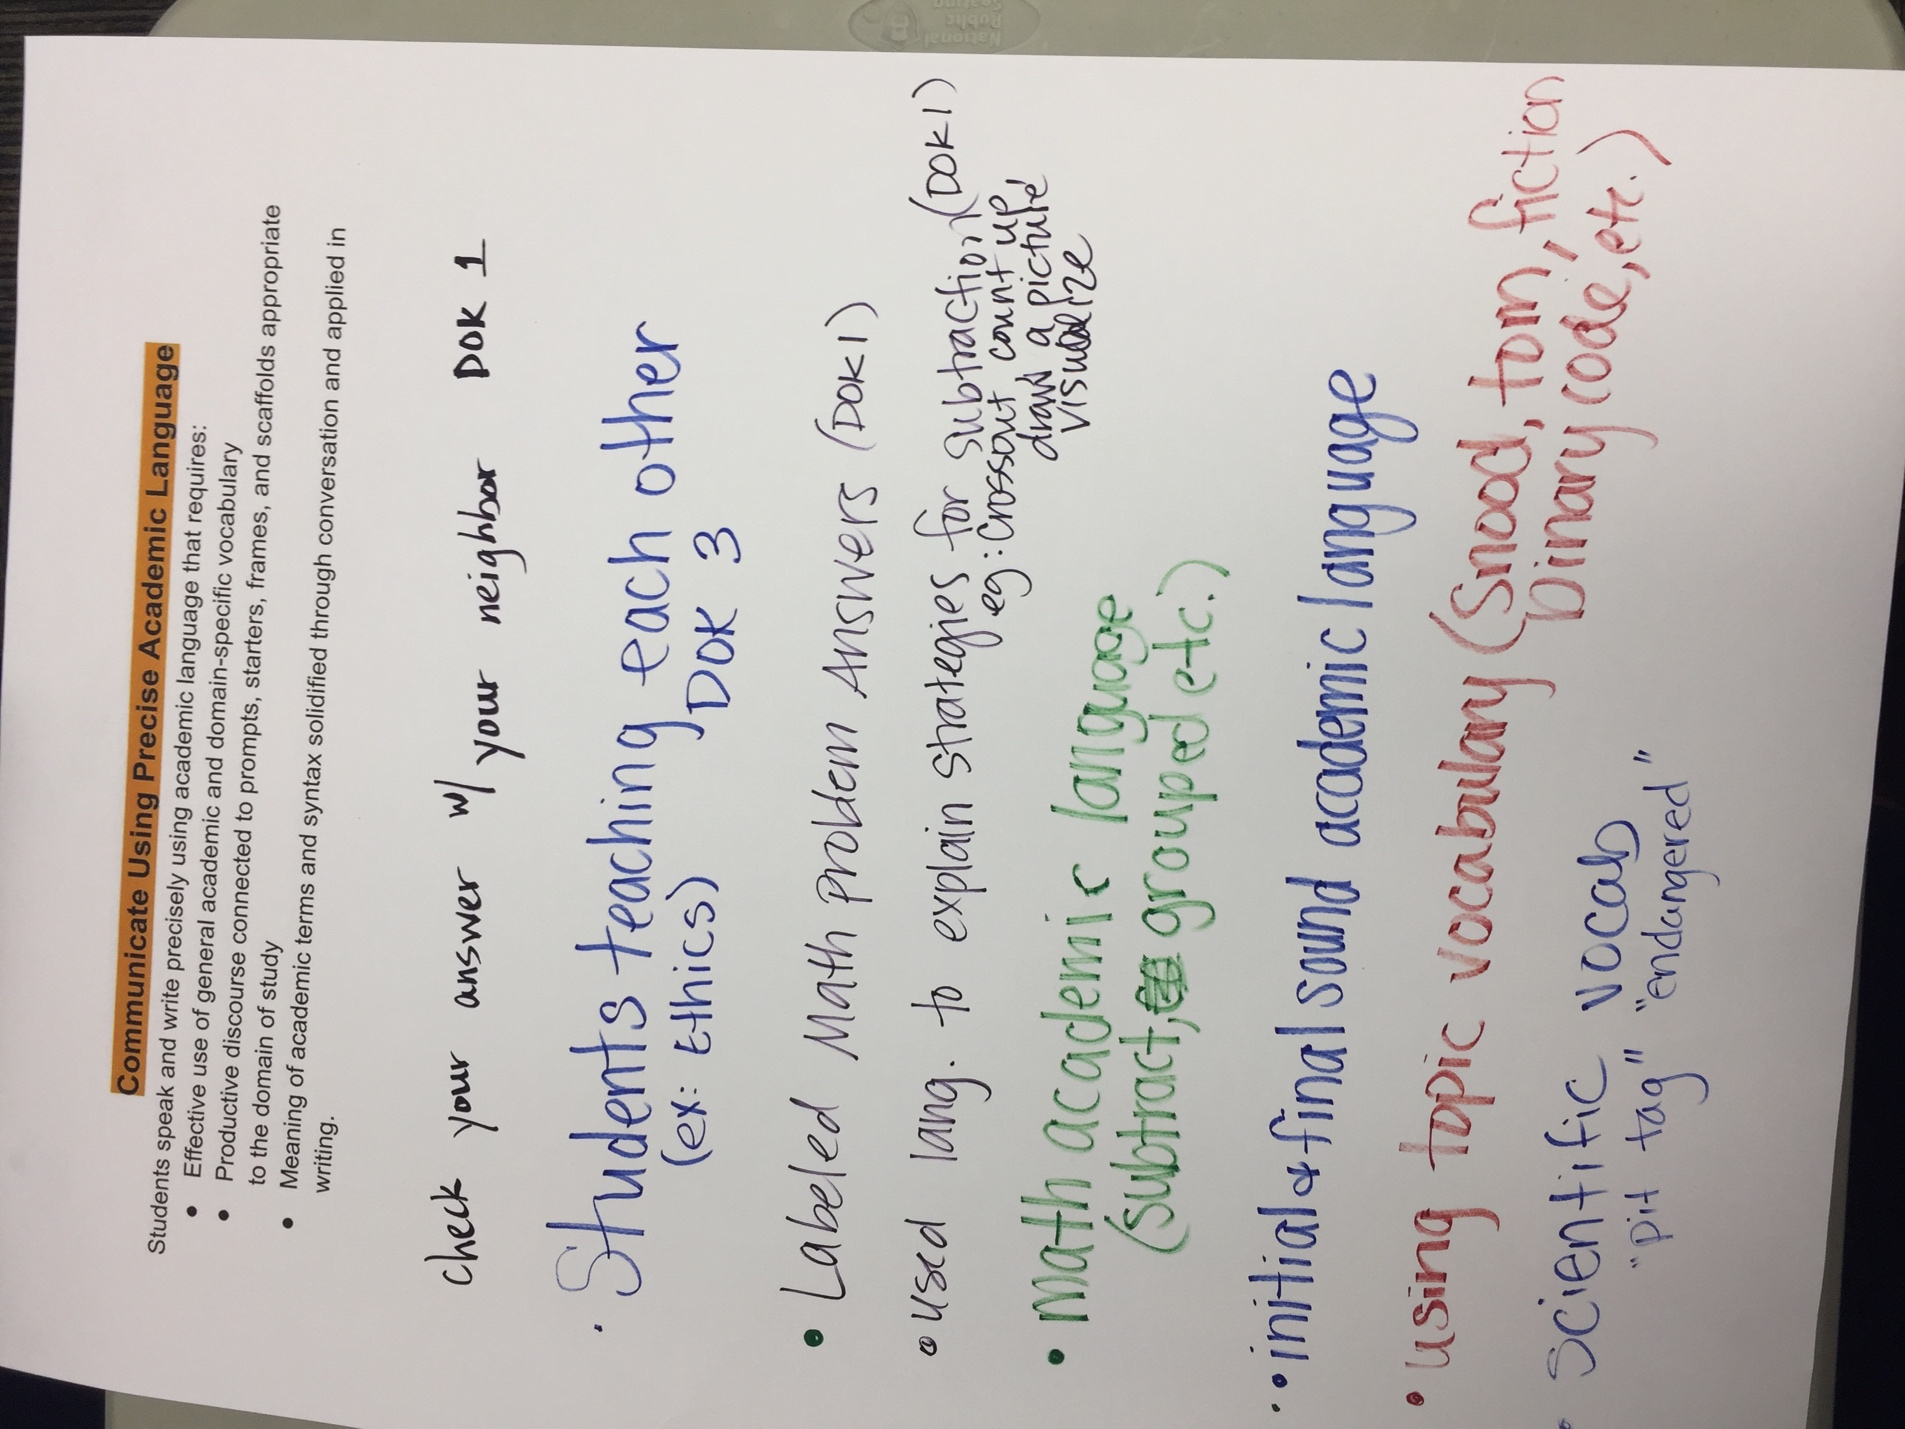 Communicate Using Precise Academic Language
Students speak and write precisely using academic language that requires:
● Effective use of general academic and domain-specific vocabulary
● Productive discourse connected to prompts, starters, frames, and scaffolds appropriate
to the domain of study
● Meaning of academic terms and syntax solidified through conversation and applied in
writing.
check your answer w/ your neighbor DOK 1
• Students teaching each other
(ex: Ethics) DOK 3
• Labeled Math Problem Answers (DOK1)
• used lang. to explain strategies for subtraction (DOK1)
eg: Crossout count up
draw a picture
visualize
• Math academic language
(subtract, grouped etc.)
• initial & final sound academic language
• using topic vocabulary (Snood, tom, fiction
binary code, etc.)
• Scientific vocab
"pit tag" "endangered"
National
Public
Seating